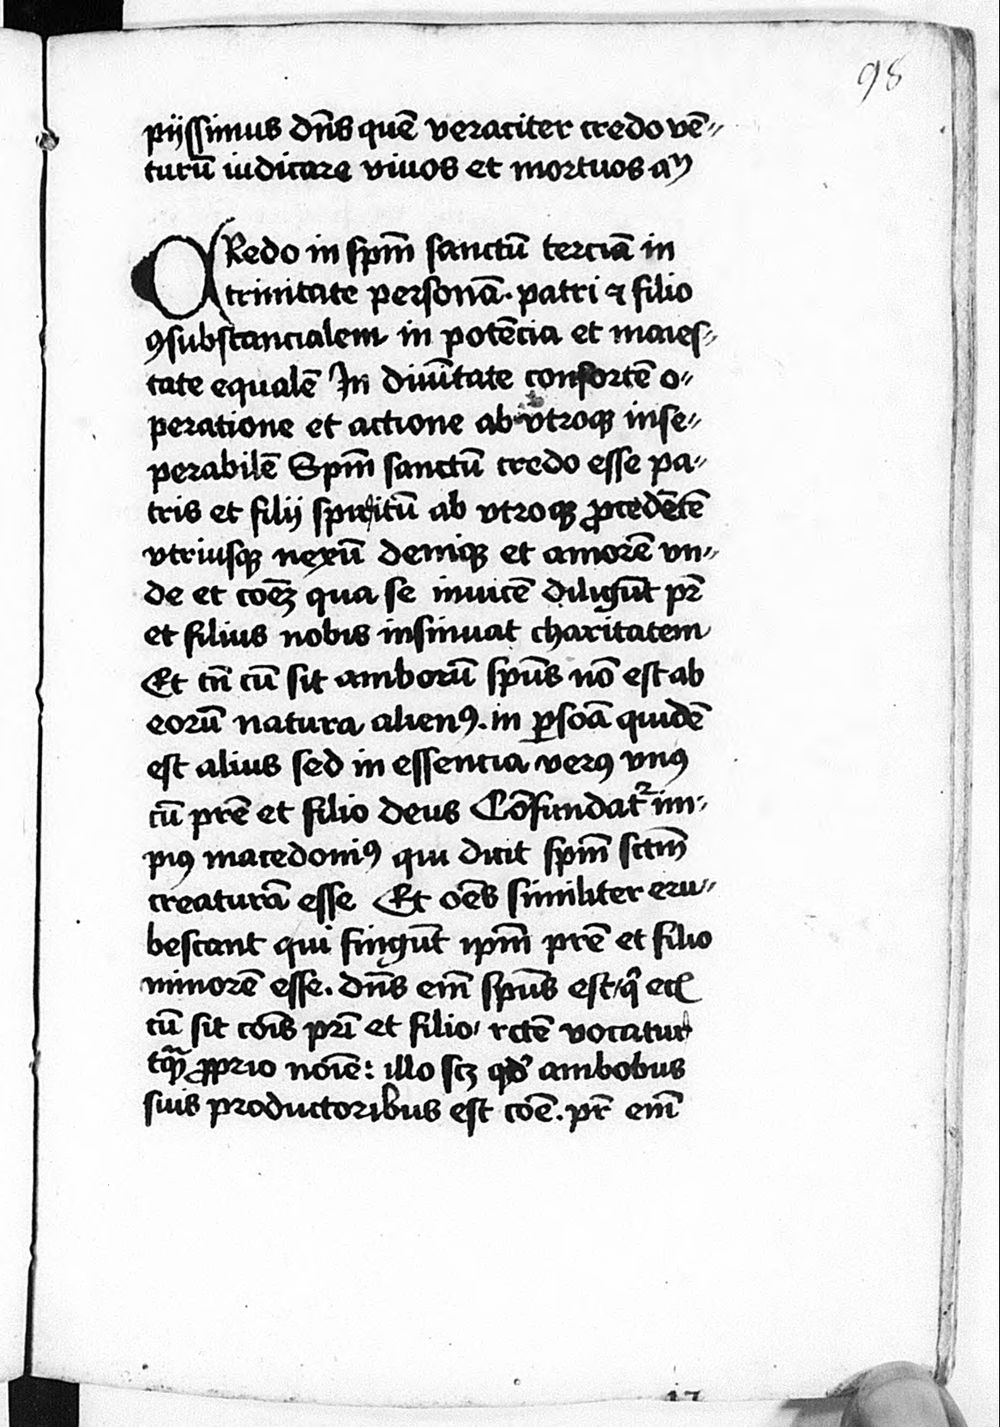 98
pijssimus dn̄s quē veraciter credo vē〃
turū iudicare viuos et mortuos am̄
CRedo in spm̄ sanctū terciā in
trinitate personā. patri ⁊ filio
ꝯsubstancialem in potēcia et maies〃
tate equalē In diuītate consortē o〃
peratione et actione ab vtroqꝫ inse〃
perabilē Spm̄ sanctū credo esse pa〃
tris et filij spiritū ab vtroqꝫ ꝓcedētē
vtriusqꝫ nexū deniqꝫ et amorē vn〃
de et coēꝫ qua se inuicē diligūt pr̄
et filius nobis insinuat charitatem
Et tn̄ cū sit amborū spūs nō est ab
eorū natura alienꝯ. in ꝑsoā quidē
est alius sed in essencia verꝯ vnꝯ
cū prē et filio deus Cōfundat᷑ im〃
piꝯ macedoniꝯ qui dicit spm̄ sctm̄
creaturā esse Et oēs similiter eru〃
bescant qui fingūt ipm̄ prē et filio
minorē esse. dn̄s em̄ spūs est/ q̄
cū sit cōis prī et filio/ rctē vocatur
tqꝫ̄ ꝓprio noīe: illo scꝫ qd̕ ambobus
suis productoribus est coē. pr̄ em̄